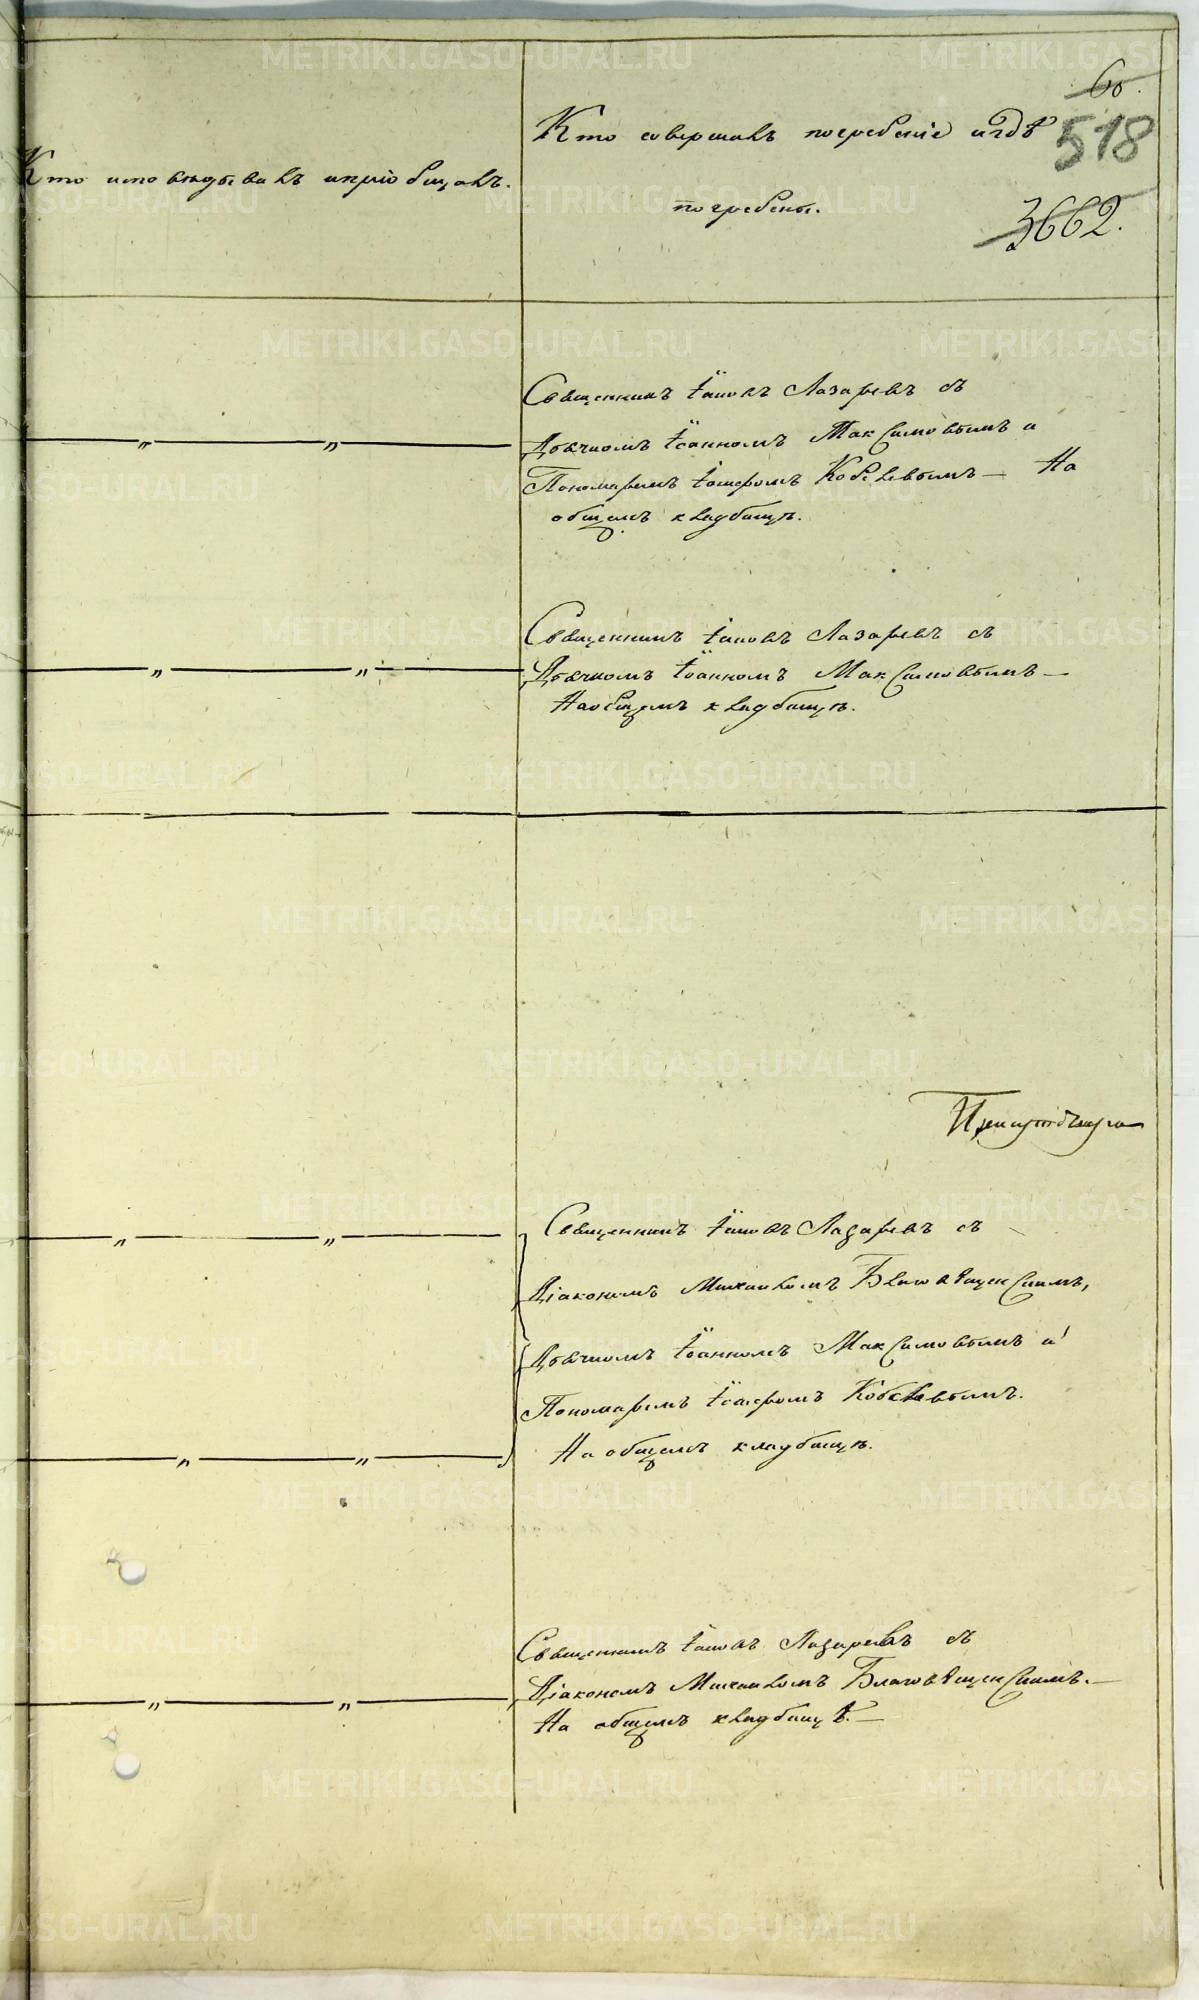 60.
518
3662.
Кто исповѣдывалъ и пріобщалъ.
Кто совершалъ погребеніе и гдѣ
погребены.
Священникъ Іаковъ Лазаревъ съ
Дьячкомъ Іоанномъ Максимовымъ и
Пономаремъ Іосифомъ Кобелевымъ — На
общемъ кладбищѣ.
Священникъ Іаковъ Лазаревъ съ
Дьячкомъ Іоанномъ Максимовымъ —
На общемъ кладбищѣ.
Священникъ Іаковъ Лазаревъ съ
Діакономъ Михаиломъ Благовѣщенскимъ,
Дьячкомъ Іоанномъ Максимовымъ и
Пономаремъ Іосифомъ Кобелевымъ.
На общемъ кладбищѣ.
Священникъ Іаковъ Лазаревъ съ
Діакономъ Михаиломъ Благовѣщенскимъ. —
На общемъ кладбищѣ. —
METRIKI.GASO-URAL.RU